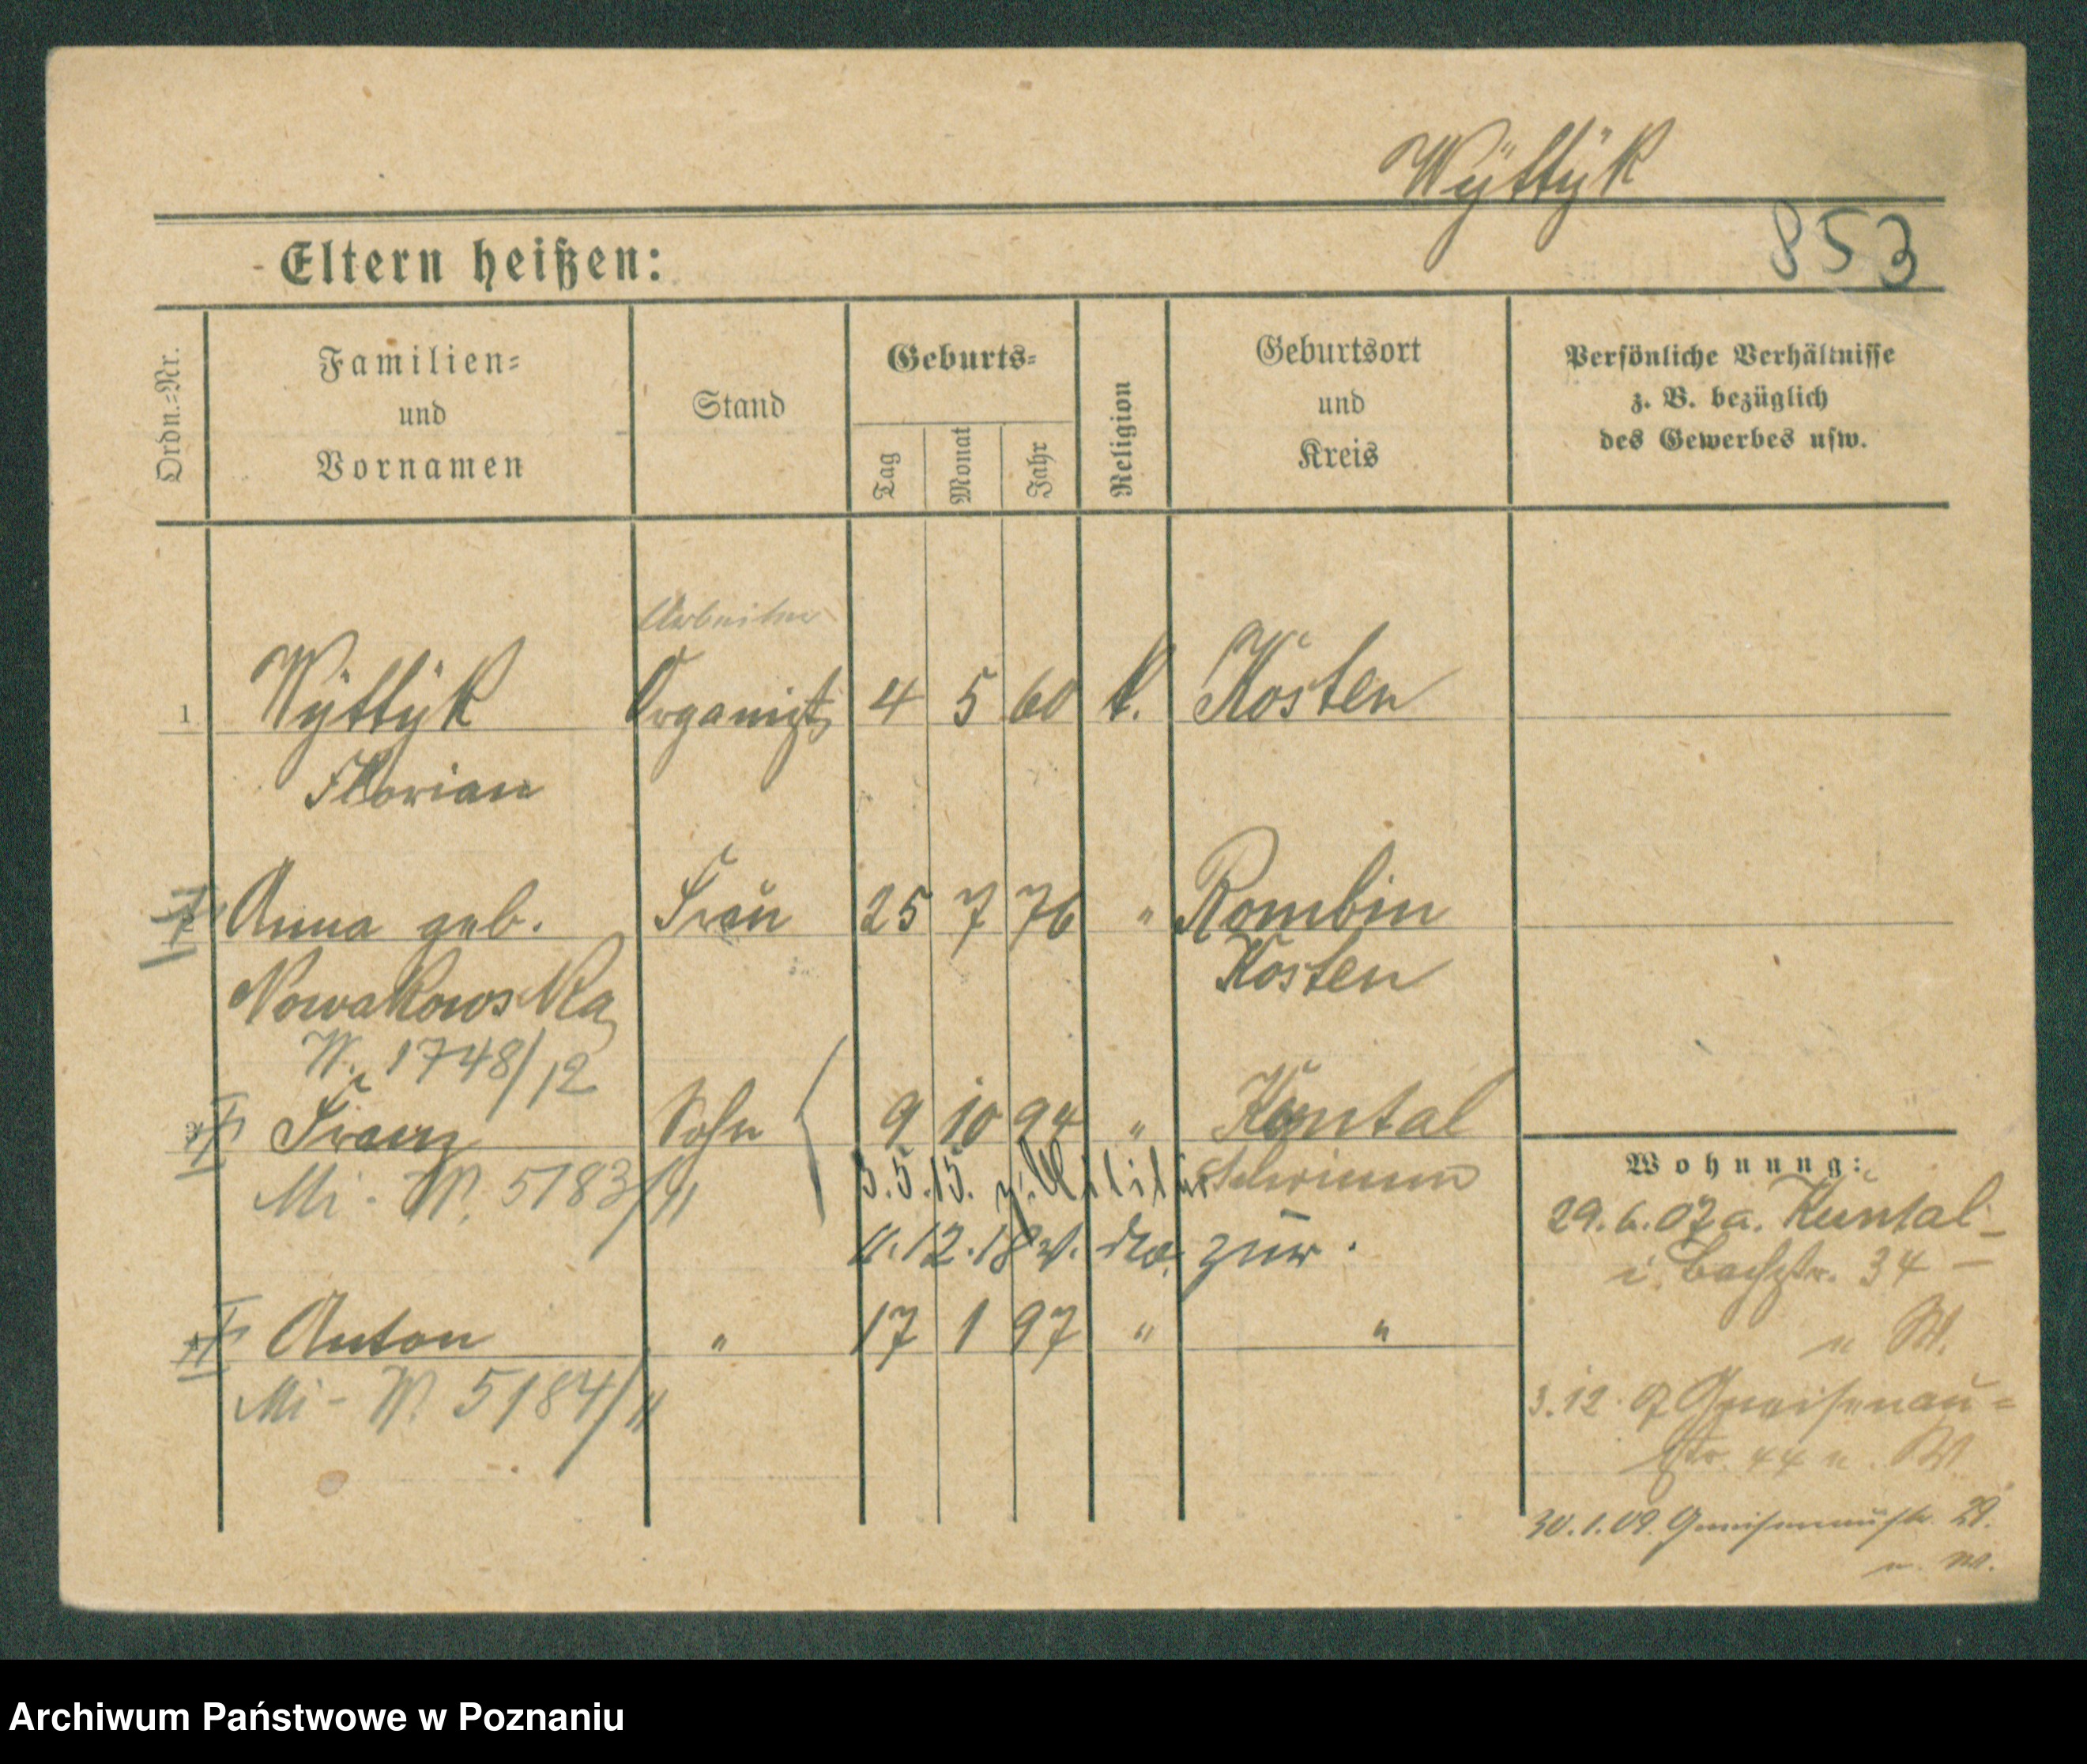 Wÿttÿk
853
Eltern heißen:
Ordn.=Nr.
Familien=
und
Vornamen
Stand
Geburts=
Tag
Monat
Jahr
Religion
Geburtsort
und
Kreis
Persönliche Verhältnisse
z. B. bezüglich
des Gewerbes usw.
Arbeiter
1 Wÿttÿk Organist 4 5 60 k. Kosten
Florian
Anna geb. Frau 25 7 76 " Rombin
Nowakowska Kosten
W. 1748/12
Franz Sohn 9 10 94 " Kuntal
Mi - W. 5183/11 3.5.15. z. Militär Schrimm
11.12.18 v. do. zur.
Anton " 17 1 97 " "
Mi - W. 5184/11
Wohnung:
29.6.07 a. Kuntal
i. Bachstr. 34
u W.
3.12.07 Gneisenau=
str. 44 u. W.
30.1.09. Gneisenaustr. 29.
u. W.
Archiwum Państwowe w Poznaniu